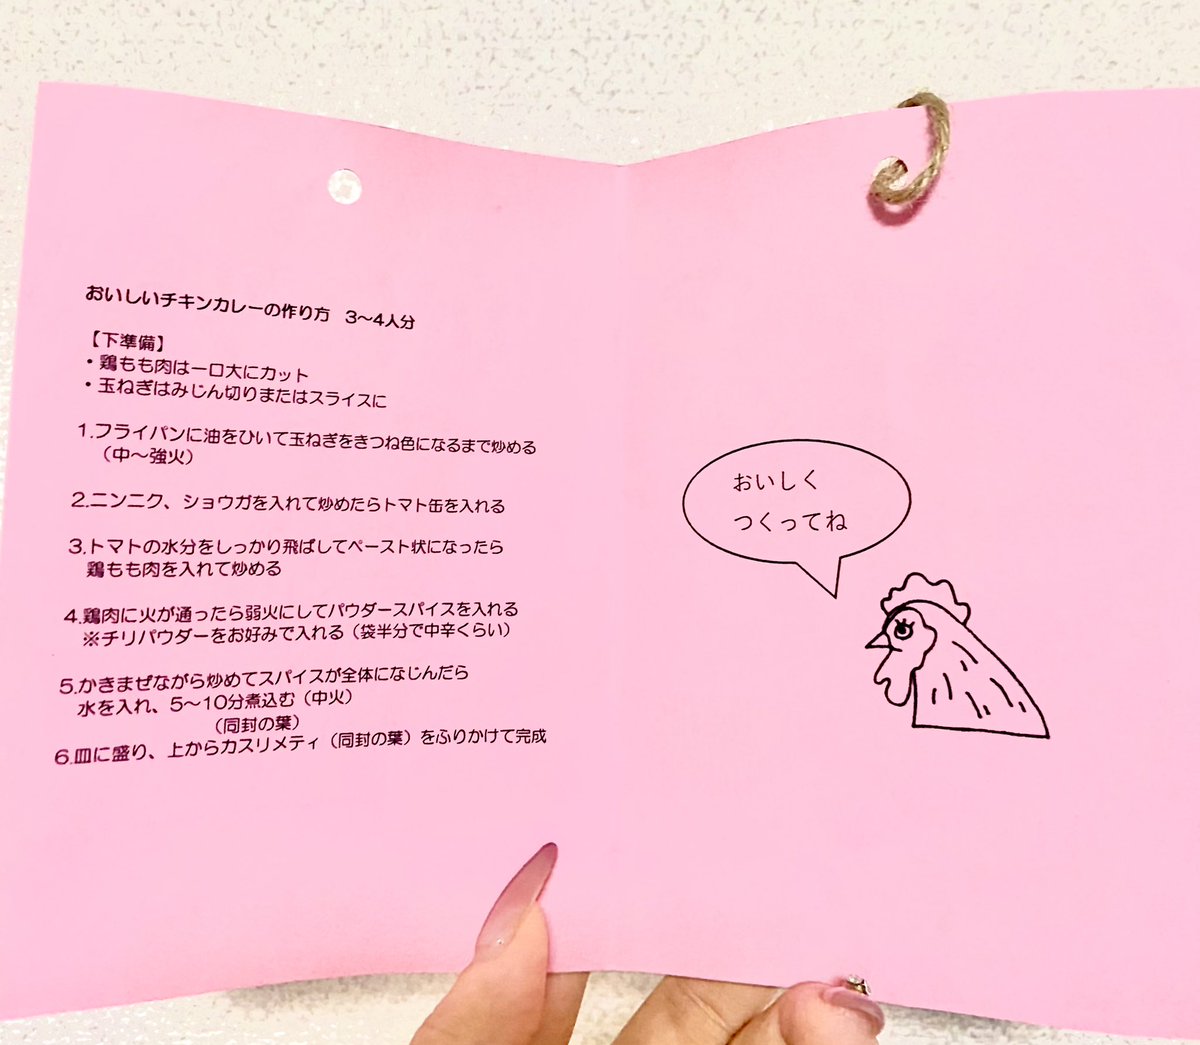 おいしいチキンカレーの作り方 3〜4人分
【下準備】
・鶏もも肉は一口大にカット
・玉ねぎはみじん切りまたはスライスに
1.フライパンに油をひいて玉ねぎをきつね色になるまで炒める
（中〜強火）
2.ニンニク、ショウガを入れて炒めたらトマト缶を入れる
3.トマトの水分をしっかり飛ばしてペースト状になったら
鶏もも肉を入れて炒める
4.鶏肉に火が通ったら弱火にしてパウダースパイスを入れる
※チリパウダーをお好みで入れる（袋半分で中辛くらい）
5.かきまぜながら炒めてスパイスが全体になじんだら
水を入れ、5〜10分煮込む（中火）
（同封の葉）
6.皿に盛り、上からカスリメティ（同封の葉）をふりかけて完成
おいしく
つくってね